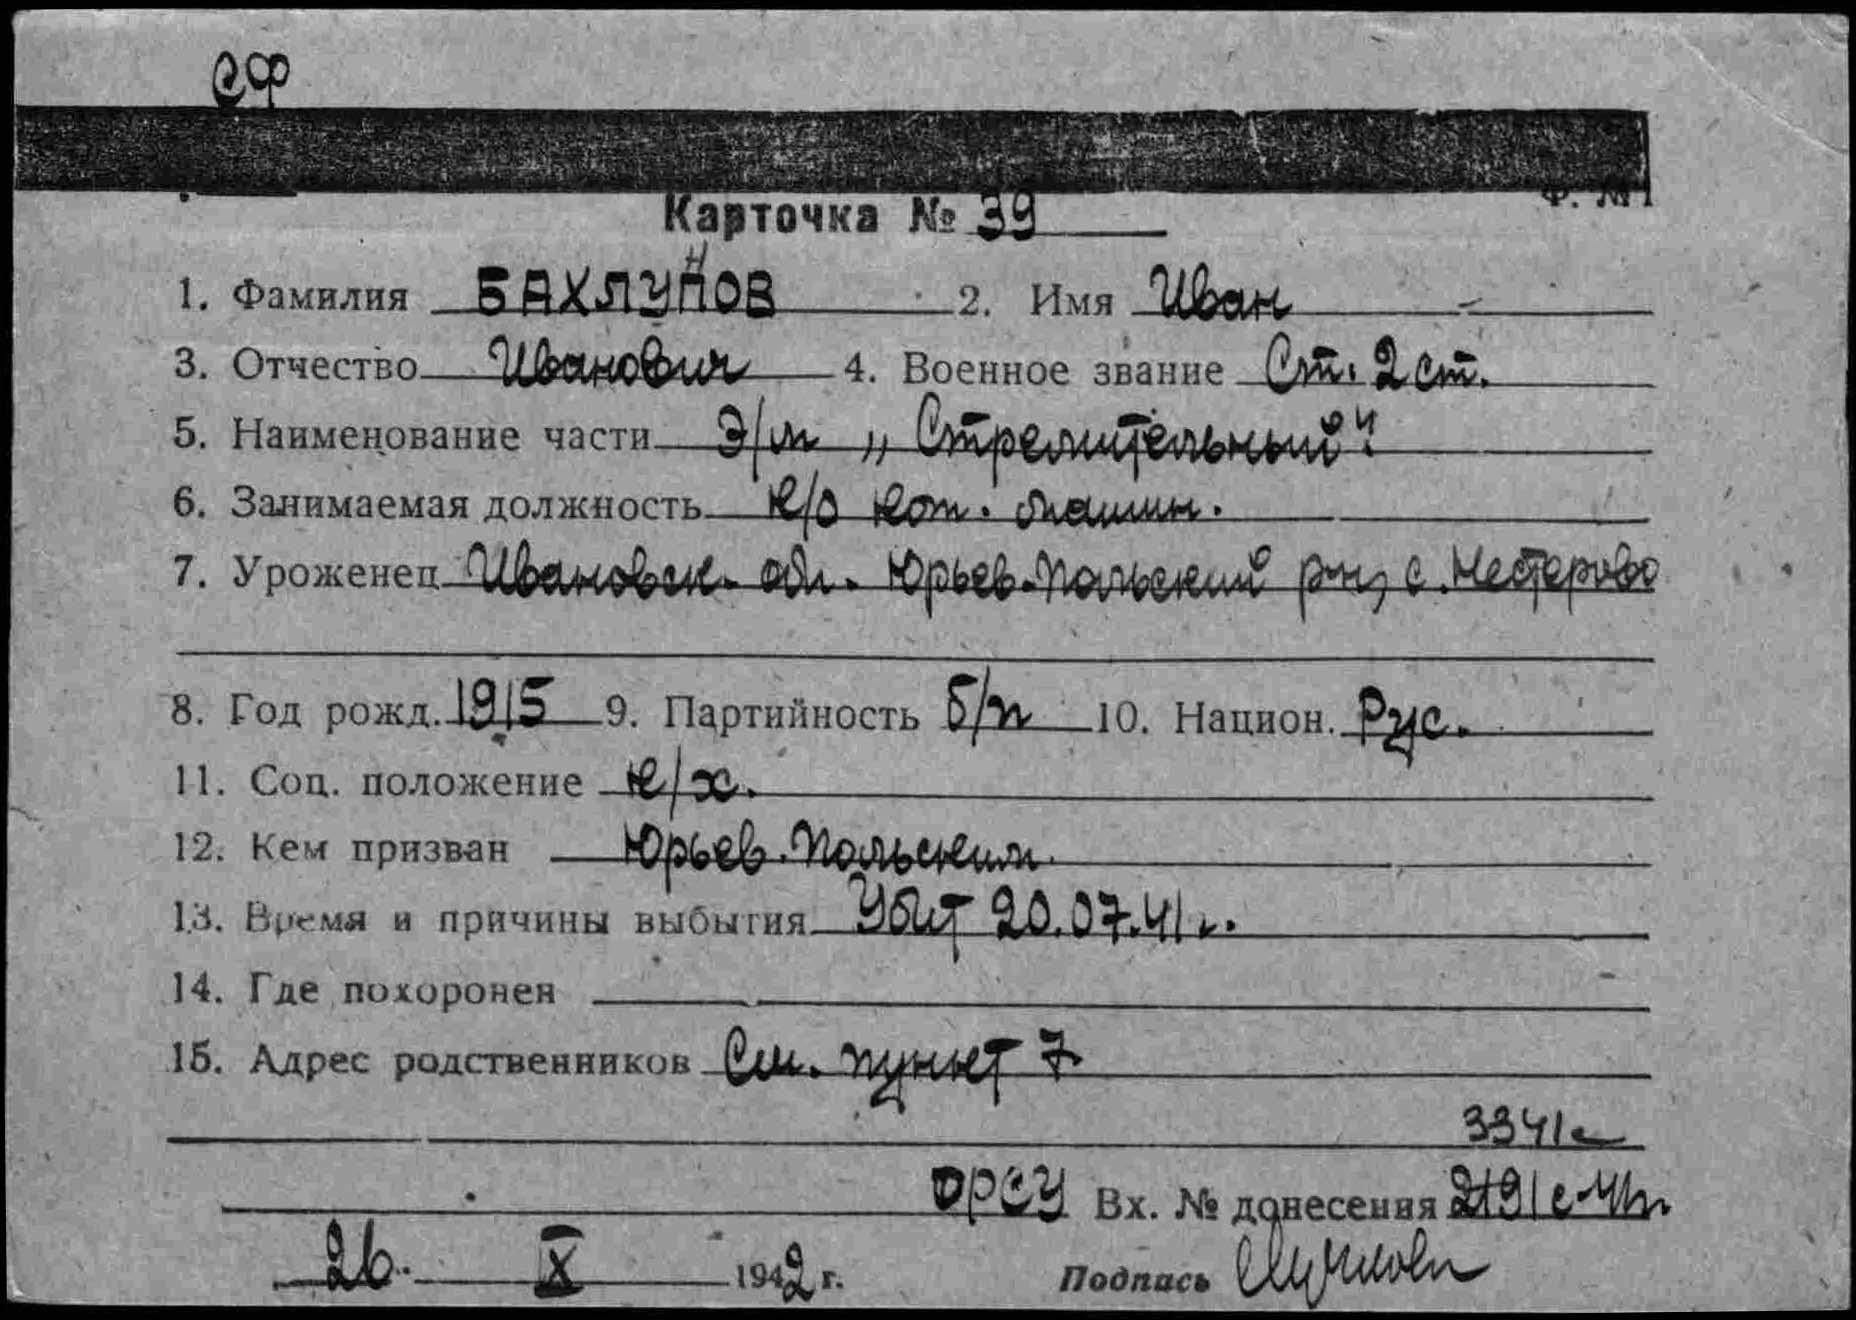 СФ
Ф. №1
Карточка № 39
Н
1. Фамилия БАХЛУПОВ 2. Имя Иван
3. Отчество Иванович 4. Военное звание Ст. 2 ст.
5. Наименование части Э/м „Стремительный“.
6. Занимаемая должность к/о кот. машин.
7. Уроженец Ивановск. обл. Юрьев-Польский рн, с. Нестерово
8. Год рожд. 1915 9. Партийность б/п 10. Национ. Рус.
11. Соц. положение к/х.
12. Кем призван Юрьев-Польским
13. Время и причины выбытия Убит 20.07.41 г.
14. Где похоронен
15. Адрес родственников См. пункт 7
3341с
ОРСУ Вх. № донесения 2191с-41г.
26. X 1942 г. Подпись